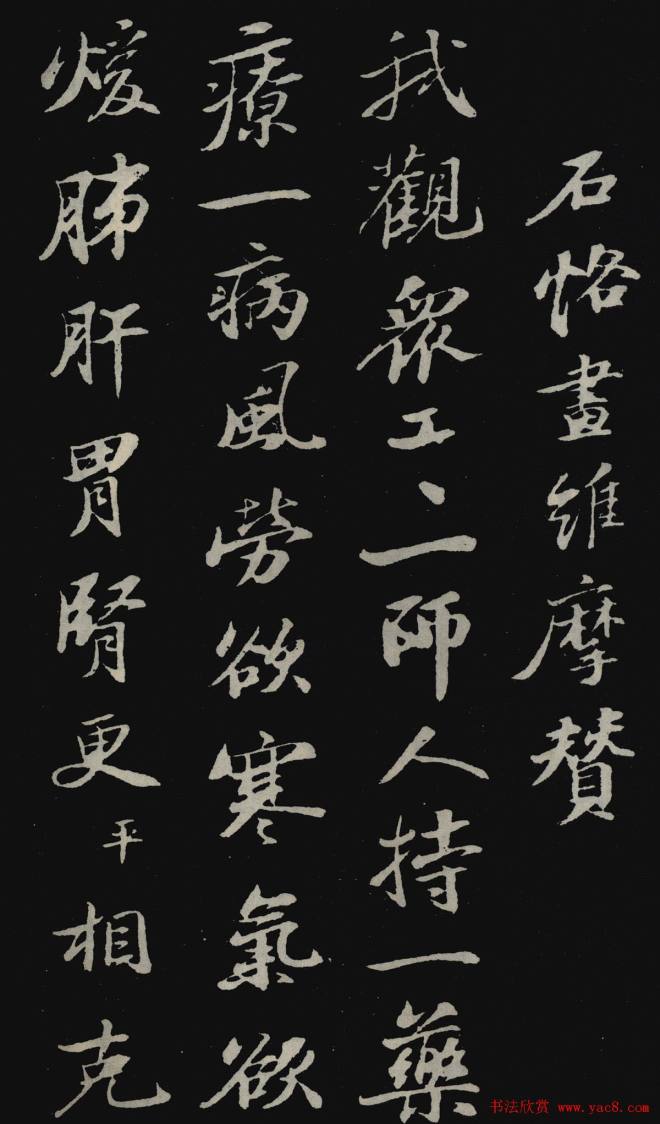 石恪畫維摩賛
我觀衆工丶一師人持一藥
療一病風勞欲寒氣欲
煖肺肝胃腎更平相克
书法欣赏 www.yac8.com